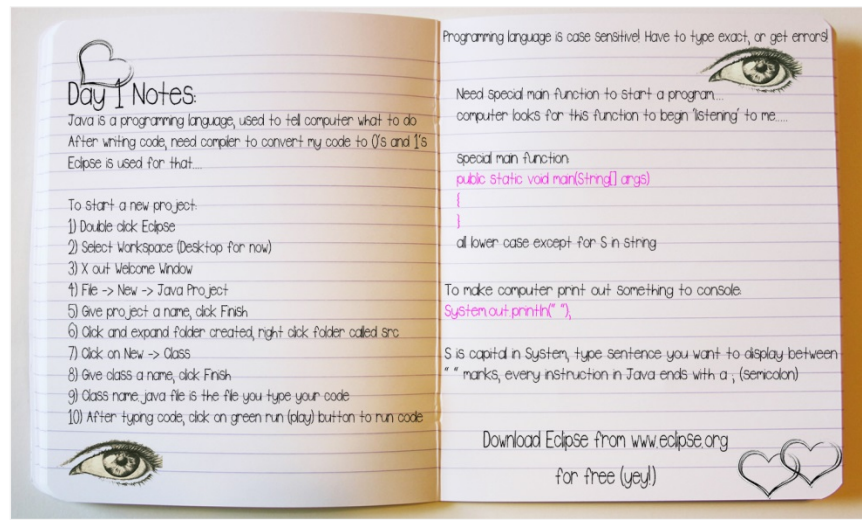 Day 1 Notes:
Java is a programming language, used to tell computer what to do
After writing code, need compiler to convert my code to 0's and 1's
Eclipse is used for that....
To start a new project:
1) Double click Eclipse
2) Select Workspace (Desktop for now)
3) X out Welcome Window
4) File -> New -> Java Project
5) Give project a name, click Finish
6) Click and expand folder created, right click folder called src
7) Click on New -> Class
8) Give class a name, click Finish
9) Class name.java file is the file you type your code
10) After typing code, click on green run (play) button to run code
Programming language is case sensitive! Have to type exact, or get errors!
Need special main function to start a program....
computer looks for this function to begin 'listening' to me.....
special main function:
public static void main(String[] args)
{
}
all lower case except for S in string
To make computer print out something to console:
System.out.println(" ");
S is capital in System, type sentence you want to display between
" " marks, every instruction in Java ends with a ; (semicolon)
Download Eclipse from www.eclipse.org
for free (yey!)